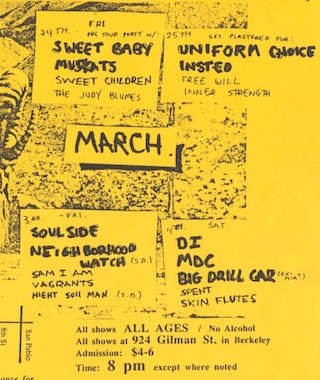 FRI
24TH. PRE TOUR PARTY W/:
SWEET BABY
MUSKRATS
SWEET CHILDREN
THE JUDY BLUMES
25TH GET PLASTERED FOR:
UNIFORM CHOICE
INSTED
FREE WILL
INNER STRENGTH
MARCH.
3RD. - FRI.
SOULSIDE
NEIGHBORHOOD
WATCH (S.D.)
SAM I AM
VAGRANTS
NIGHT SOIL MAN (S.D.)
SAT.
4TH.
DI
MDC
BIG DRILL CAR
SPENT
SKIN FLUTES
8th St
San Pablo
All shows ALL AGES / No Alcohol
All shows at 924 Gilman St. in Berkeley
Admission: $4-6
Time: 8 pm except where noted